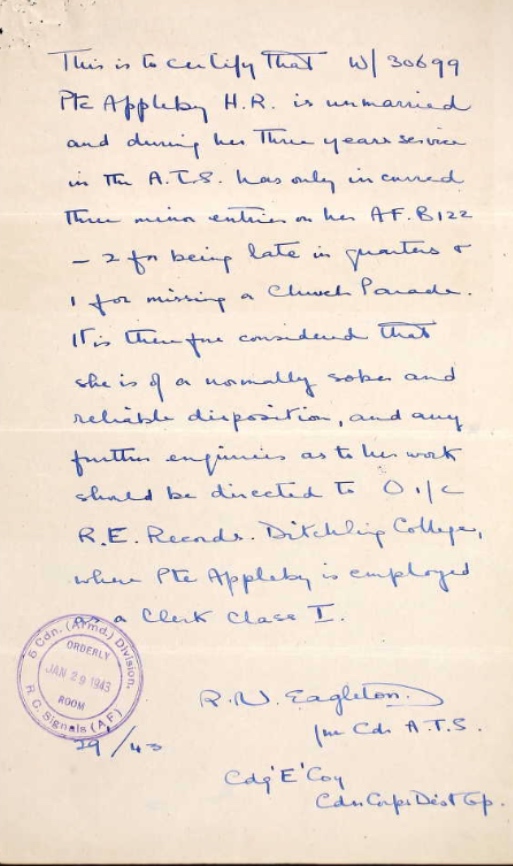 This is to certify that W/30699
Pte Appleby H.R. is unmarried
and during her three years service
in the A.T.S. has only incurred
three minor entries on her AF.B122
– 2 for being late in quarters &
1 for missing a Church Parade.
It is therefore considered that
she is of a normally sober and
reliable disposition, and any
further enquiries as to her work
should be directed to O i/c
R.E. Records. Ditchling College,
where Pte Appleby is employed
as a Clerk Class I.
5 Cdn. (Armd.) Division.
ORDERLY
JAN 29 1943
ROOM
R.C. Signals (A F)
R.W. Eagleton.
Jnr Cdr A.T.S.
29/ /43
Cdg 'E' Coy